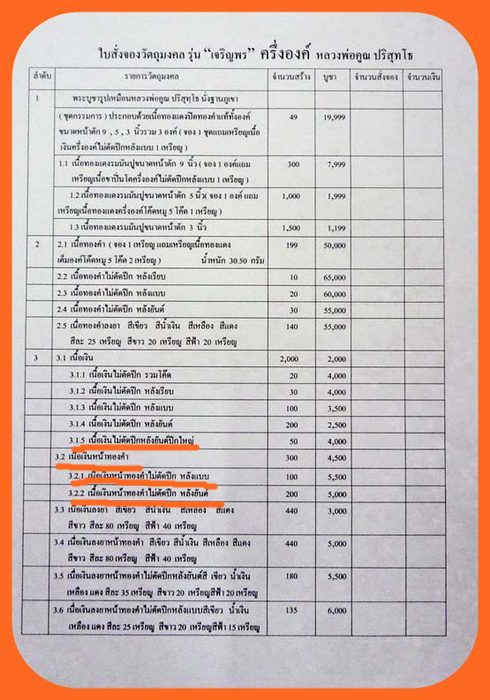 ใบสั่งจองวัตถุมงคล รุ่น “เจริญพร” ครึ่งองค์ หลวงพ่อคูณ ปริสุทโธ
ลำดับ รายการวัตถุมงคล จำนวนสร้าง บูชา จำนวนสั่งจอง จำนวนเงิน
1 พระบูชารูปเหมือนหลวงพ่อคูณ ปริสุทโธ นั่งฐานภูเขา
( ชุดกรรมการ ) ประกอบด้วยเนื้อทองแดงปิดทองคำแท้ทั้งองค์ 49 19,999
ขนาดหน้าตัก 9 , 5 , 3 นิ้วรวม 3 องค์ ( จอง 1 ชุดแถมเหรียญเนื้อ
เงินครึ่งองค์ไม่ตัดปีกหลังแบบ 1 เหรียญ )
1.1 เนื้อทองแดงรมมันปูขนาดหน้าตัก 9 นิ้ว ( จอง 1 องค์แถม 300 7,999
เหรียญเนื้ออาปาโตครึ่งองค์ไม่ตัดปีกหลังแบบ 1 เหรียญ )
1.2 เนื้อทองแดงรมมันปูขนาดหน้าตัก 5 นิ้ว ( จอง 1 องค์ แถม 1,000 1,999
เหรียญเนื้อทองแดงครึ่งองค์โค๊ดหมู 5 โค๊ด 1 เหรียญ )
1.3 เนื้อทองแดงรมมันปูขนาดหน้าตัก 3 นิ้ว 1,500 1,199
2 2.1 เนื้อทองคำ ( จอง 1 เหรียญ แถมเหรียญเนื้อทองแดง 199 50,000
เต็มองค์โค๊ดหมู 5 โค๊ด 2 เหรียญ ) น้ำหนัก 30.50 กรัม
2.2 เนื้อทองคำไม่ตัดปีก หลังเรียบ 10 65,000
2.3 เนื้อทองคำไม่ตัดปีก หลังแบบ 20 60,000
2.4 เนื้อทองคำไม่ตัดปีก หลังยันต์ 30 55,000
2.5 เนื้อทองคำลงยา สีเขียว สีน้ำเงิน สีเหลือง สีแดง 140 55,000
สีละ 25 เหรียญ สีขาว 20 เหรียญ สีฟ้า 20 เหรียญ
3 3.1 เนื้อเงิน 2,000 2,000
3.1.1 เนื้อเงินไม่ตัดปีก รวมโค๊ด 20 4,000
3.1.2 เนื้อเงินไม่ตัดปีก หลังเรียบ 30 4,000
3.1.3 เนื้อเงินไม่ตัดปีก หลังแบบ 100 3,500
3.1.4 เนื้อเงินไม่ตัดปีก หลังยันต์ 200 2,500
3.1.5 เนื้อเงินไม่ตัดปีกหลังยันต์ปีกใหญ่ 50 4,000
3.2 เนื้อเงินหน้าทองคำ 300 4,500
3.2.1 เนื้อเงินหน้าทองคำไม่ตัดปีก หลังแบบ 100 5,500
3.2.2 เนื้อเงินหน้าทองคำไม่ตัดปีก หลังยันต์ 200 5,000
3.3 เนื้อเงินลงยา สีเขียว สีน้ำเงิน สีเหลือง สีแดง 440 3,000
สีขาว สีละ 80 เหรียญ สีฟ้า 40 เหรียญ
3.4 เนื้อเงินลงยาหน้าทองคำ สีเขียว สีน้ำเงิน สีเหลือง สีแดง 440 5,000
สีขาว สีละ 80 เหรียญ สีฟ้า 40 เหรียญ
3.5 เนื้อเงินลงยาหน้าทองคำไม่ตัดปีกหลังยันต์สี เขียว น้ำเงิน 180 5,500
เหลือง แดง สีละ 35 เหรียญ สีขาว 20 เหรียญสีฟ้า 20 เหรียญ
3.6 เนื้อเงินลงยาหน้าทองคำไม่ตัดปีกหลังแบบสีเขียว น้ำเงิน 135 6,000
เหลือง แดง สีละ 25 เหรียญ สีขาว 20 เหรียญสีฟ้า 15 เหรียญ